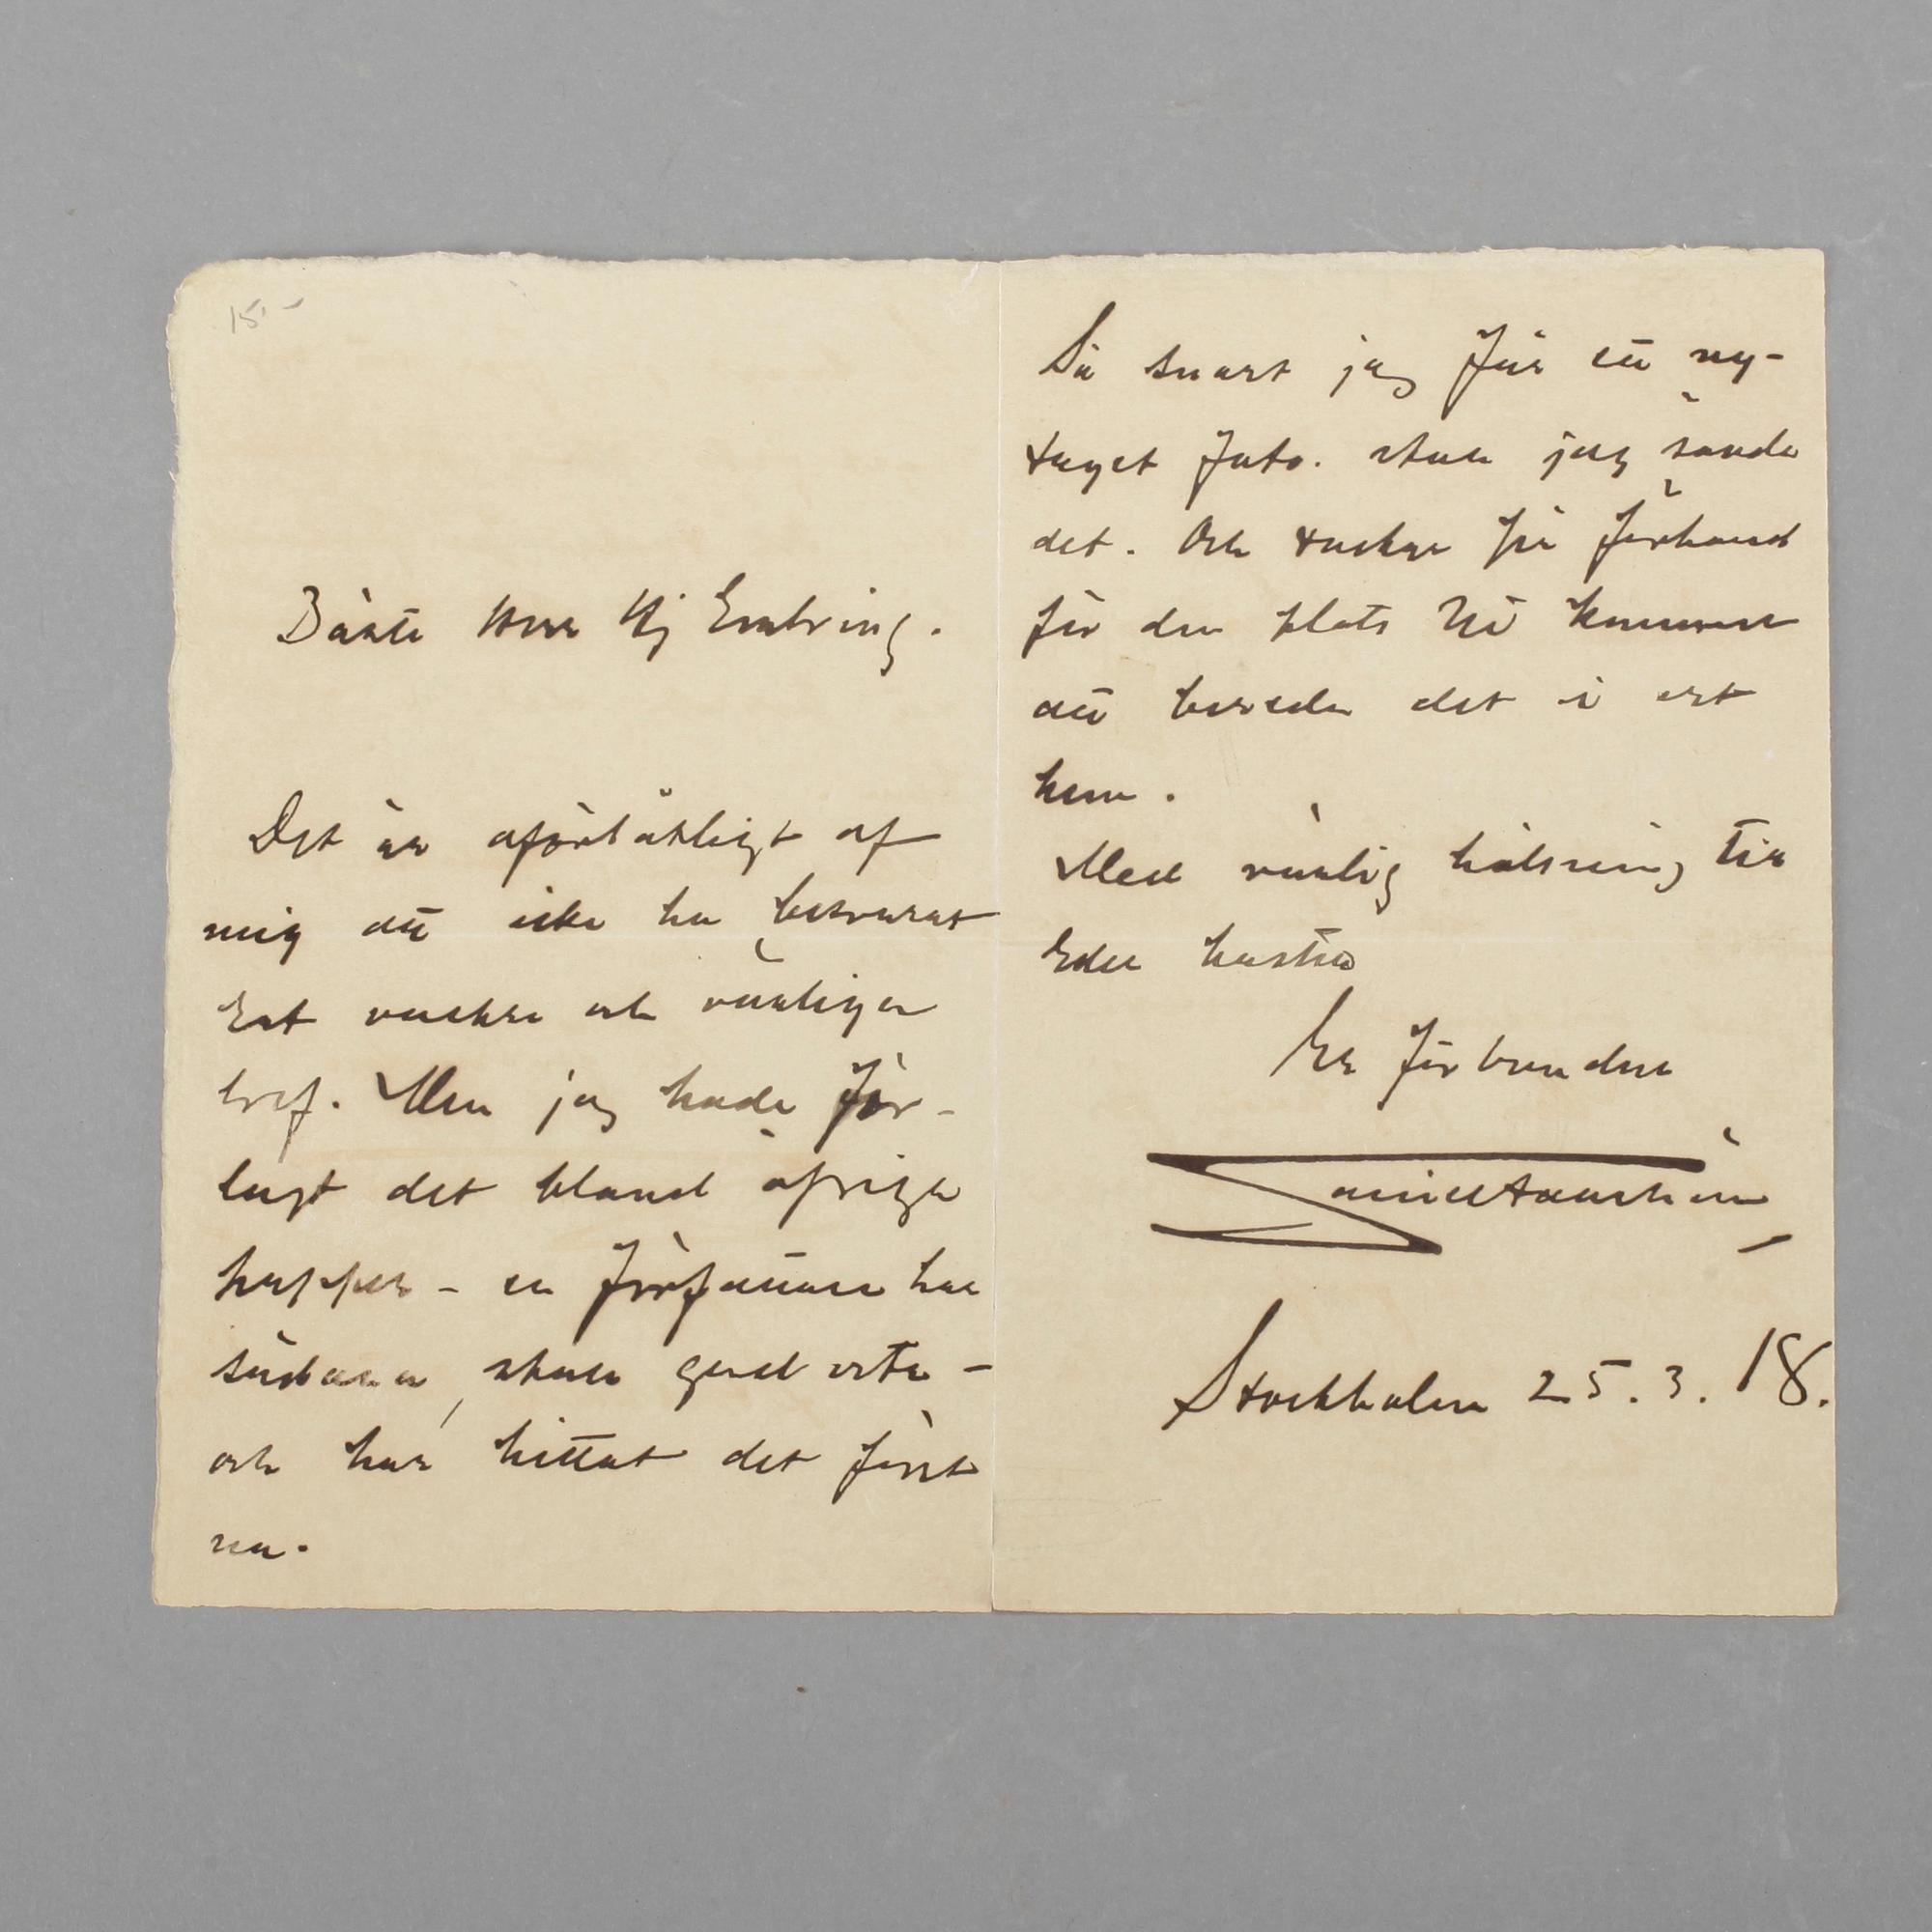 15.-
Bäste Herr Hj Embring.
Det är oförlåtligt af
mig att icke ha besvarat
Ert vackra och vänliga
bref. Men jag hade för-
lagt det bland öfriga
papper - en författare har
sådana, skall gud veta -
och har hittat det först
nu.
Så snart jag får ett ny-
taget foto. skall jag sända
det. Och tackar på förhand
för den plats Ni kommer
att bereda det i ert
hem.
Med vänlig hälsning till
Eder hustru
Er förbundne
Stockholm 25.3.18.